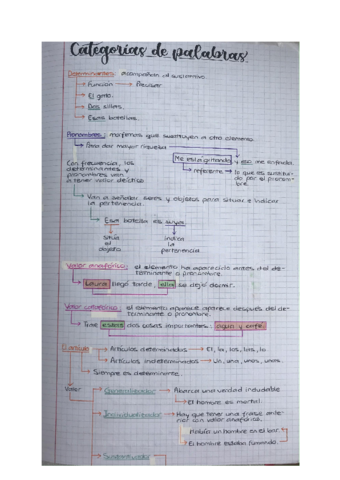 Categorías de palabras
Determinantes: acompañan al sustantivo.
Función → Precisar
El gato.
Dos sillas.
Esas botellas.
Pronombres: morfemas que sustituyen a otro elemento.
Para dar mayor riqueza
Me está gritando y eso me enfada.
referente → lo que es sustituido por el pronombre.
Con frecuencia, los determinantes y pronombres van a tener valor deíctico
Van a señalar seres y objetos para situar e indicar
la pertenencia.
Esa botella es suya.
sitúa el objeto.
indica la pertenencia.
Valor anafórico: el elemento ha aparecido antes del de-
terminante o pronombre.
Laura llegó tarde, ella lo dejó claro.
Valor catafórico: el elemento aparece después del de-
terminante o pronombre.
Trae estas dos cosas importantes: agua y café.
El artículo → Artículos determinados → El, la, los, las, lo
Artículos indeterminados → Un, una, unos, unas.
Siempre es determinante.
Valor
Generalizador → Abarca una verdad indudable
El hombre es mortal.
Individualizador → Hay que tener una frase ante-
rior con valor anafórico.
Había un hombre en el bar.
El hombre estaba fumando.
Sustantivador